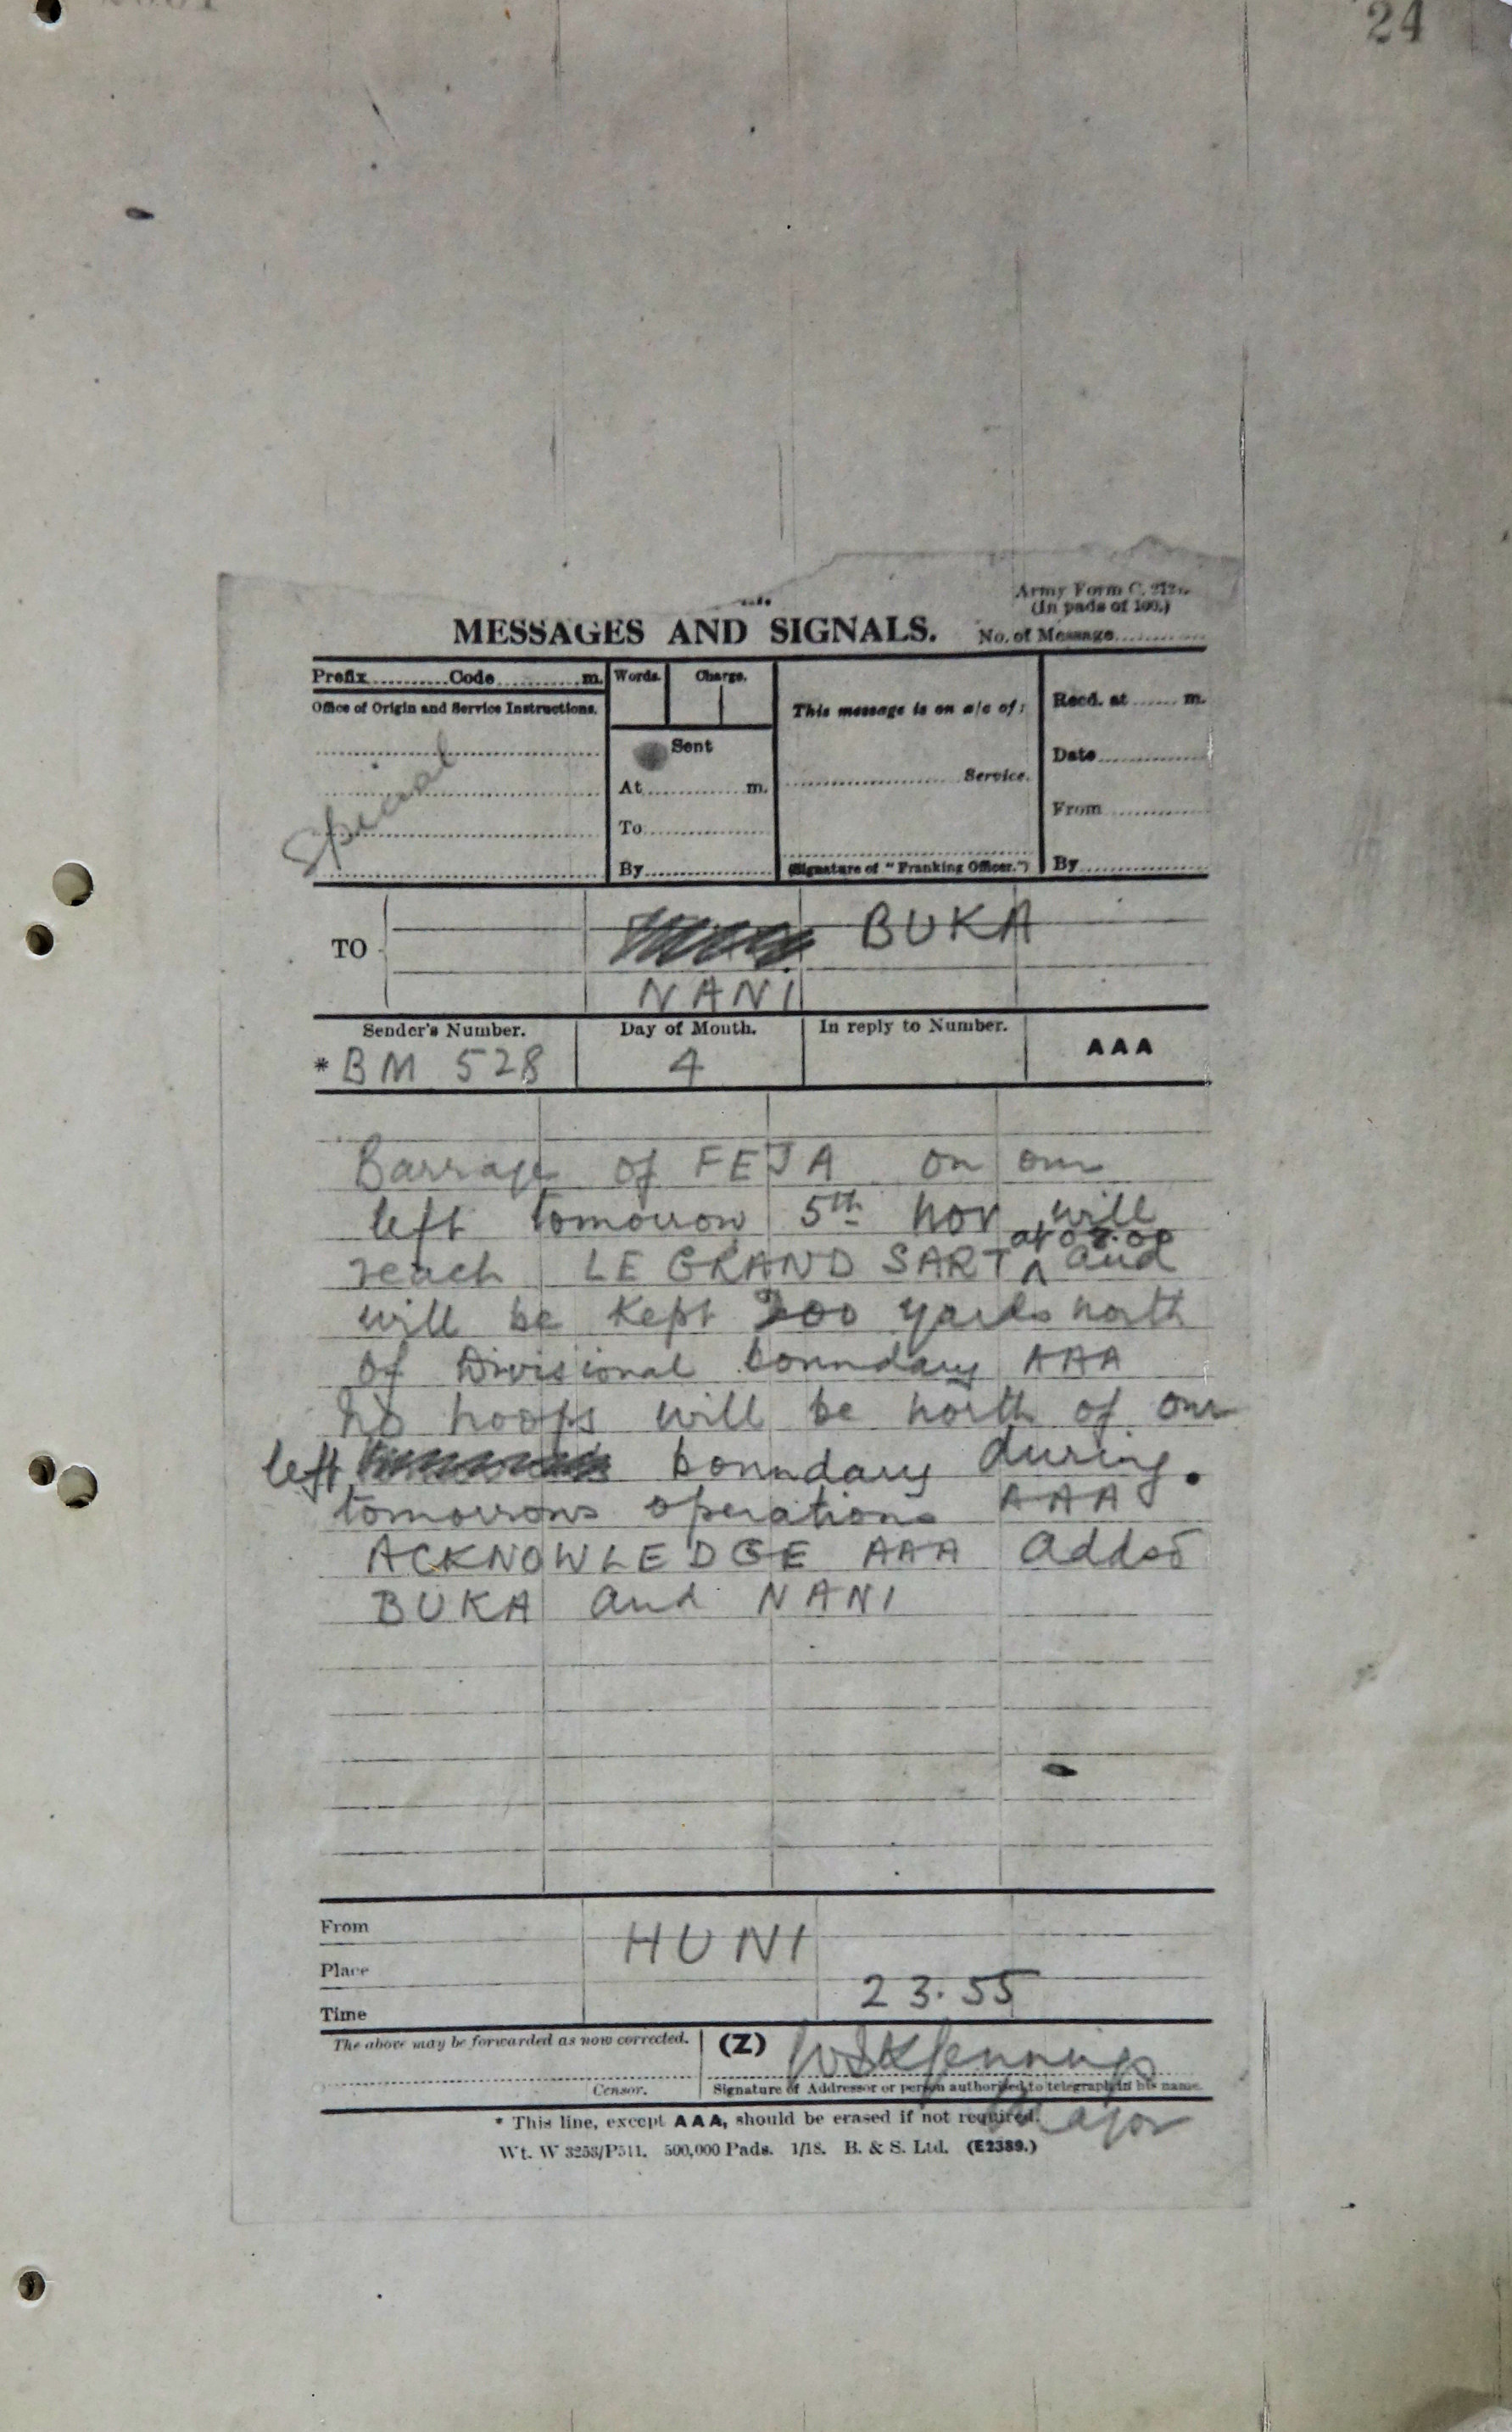 24
Army Form C. 212
(In pads of 100.)
MESSAGES AND SIGNALS. No. of Message
Prefix Code m. Words. Charge.
This message is on a/c of:
Recd. at m.
Office of Origin and Service Instructions.
Special
Sent
Date
Service.
At m.
From
To
By
(Signature of "Franking Officer.")
By
TO
BUKA
NANI
Sender's Number. Day of Month. In reply to Number.
* BM 528 4 AAA
Barrage of FEJA on our
left tomorrow 5th Nov will
reach LE GRAND SART at and
will be kept 200 yards north
of Divisional boundary AAA
No troops will be north of our
left boundary during
tomorrows operations AAA
ACKNOWLEDGE AAA Addsd
BUKA and NANI
From
HUNI
Place
23.55
Time
The above may be forwarded as now corrected. (Z) Jennings
Censor. Signature of Addressor or person authorised to telegraph in his name.
Major
* This line, except AAA, should be erased if not required.
Wt. W 3253/P511. 500,000 Pads. 1/18. B. & S. Ltd. (E2389.)